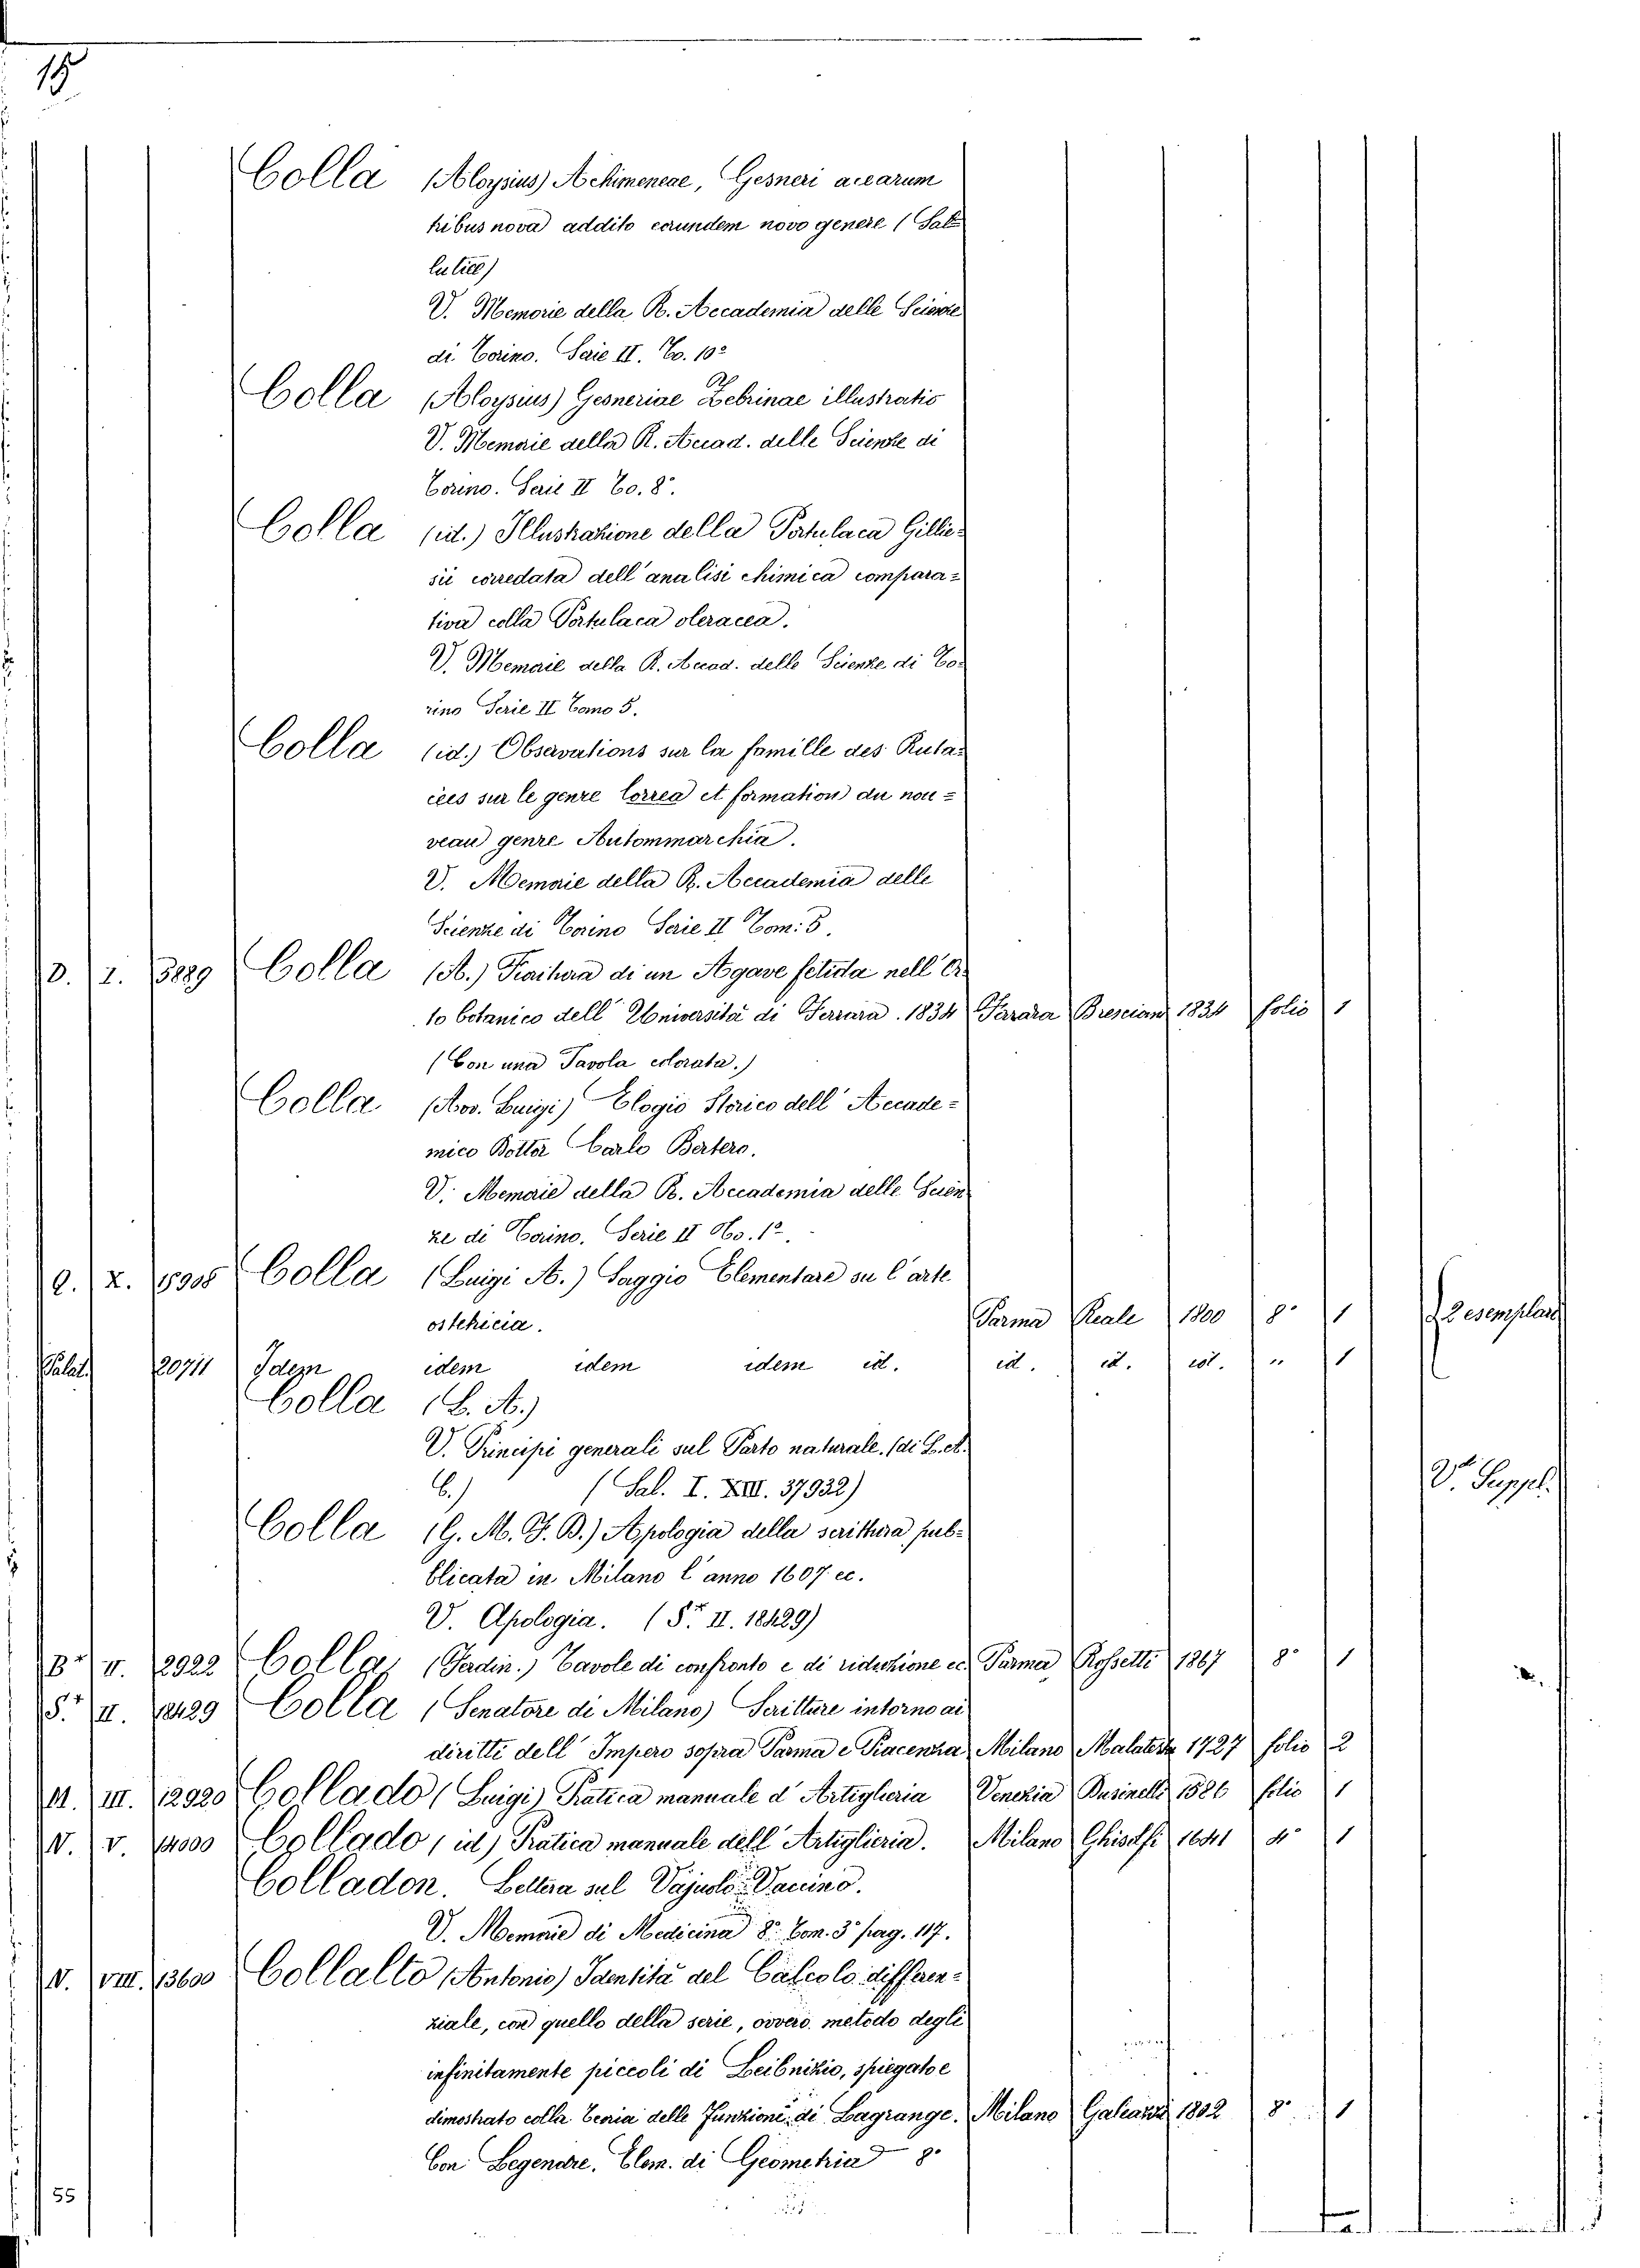 15
Colla (Aloysius) Achimeneae, Gesneri acearum
tribus nova addito eorundem novo genere (
lutiee)
V. Memorie della R. Accademia delle Scienze
di Torino. Serie II. To. 10º
Colla (Aloysius) Gesneriae Zebrinae illustratio
V. Memorie della R. Accad. delle Scienze di
Torino. Serie II To. 8º.
Colla (id.) Illustrazione della Portulaca Gillie-
sii corredata dell'analisi chimica compara=
tiva colla Portulaca oleracea.
V. Memorie della R. Accad. delle Scienze di To-
rino Serie II Tomo 5.
Colla (id.) Observations sur la famille des Ruta-
cées sur le genre Correa et formation du nou=
veau genre Antommarchia.
V. Memorie della R. Accademia delle
Scienze di Torino Serie II Tom: 5.
D. I. 3889 Colla (A.) Fioritura di un Agave fetida nell'Or-
to botanico dell'Università di Ferrara. 1834 Ferrara Bresciani 1834 folio 1
(Con una Tavola colorata.)
Colla (Avv. Luigi) Elogio Storico dell'Accade=
mico Dottor Carlo Bertero.
V. Memorie della R. Accademia delle Scien
ze di Torino. Serie II To. 1º.
Q. X. 15908 Colla (Luigi A.) Saggio Elementare su l'arte
ostetricia. Parma Reale 1800 8º 1 2 esemplari
Palat. 20711 Idem idem idem idem id. id. id. id. " 1
Colla (L. A.)
V. Principi generali sul Parto naturale. (di L. A.
C.) (Sal. I. XIII. 37932) Vi Suppl.
Colla (G. M. F. B.) Apologia della scrittura pub-
blicata in Milano l'anno 1607 ec.
V. Apologia. (S.x II. 18429)
B.x II. 2922 Colla, (Ferdin.) Tavole di confronto e di riduzione ec. Parma Rossetti 1867 8º 1
S.x II. 18429 Colla (Senatore di Milano) Scritture intorno ai
diritti dell'Impero sopra Parma e Piacenza Milano Malatesta 1727 folio 2
M. III. 12920 Collado (Luigi) Pratica manuale d'Artiglieria Venezia Businelli 1586 folio 1
N. V. 14000 Collado (id) Pratica manuale dell'Artiglieria. Milano Ghisolfi 1641 4º 1
Colladon. Lettera sul Vajuolo Vaccino.
V. Memorie di Medicina 8º. Tom. 3º pag. 117.
N. VIII. 13600 Collalto (Antonio) Identità del Calcolo differen-
ziale, con quello della serie, ovvero metodo degli
infinitamente piccoli di Leibnizio, spiegato e
dimostrato colla teoria delle Funzioni di Lagrange. Milano Galeazzi 1802 8º 1
Con Legendre. Elem. di Geometria 8º
55